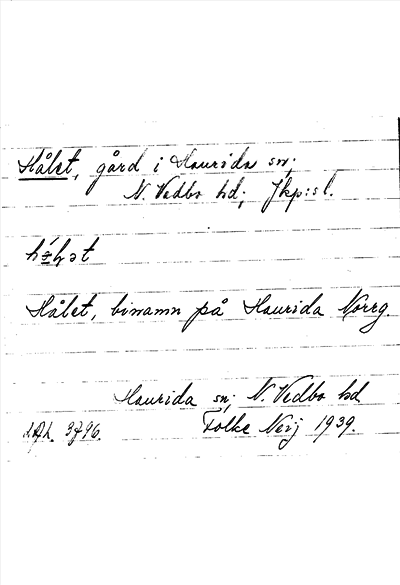 Hålet, gård i Haurida sn;
N. Vedbo hd; Jkp:sl.
Hålet, binamn på Haurida Norrg.
Haurida sn; N. Vedbo hd
3796. Folke Neij 1939.